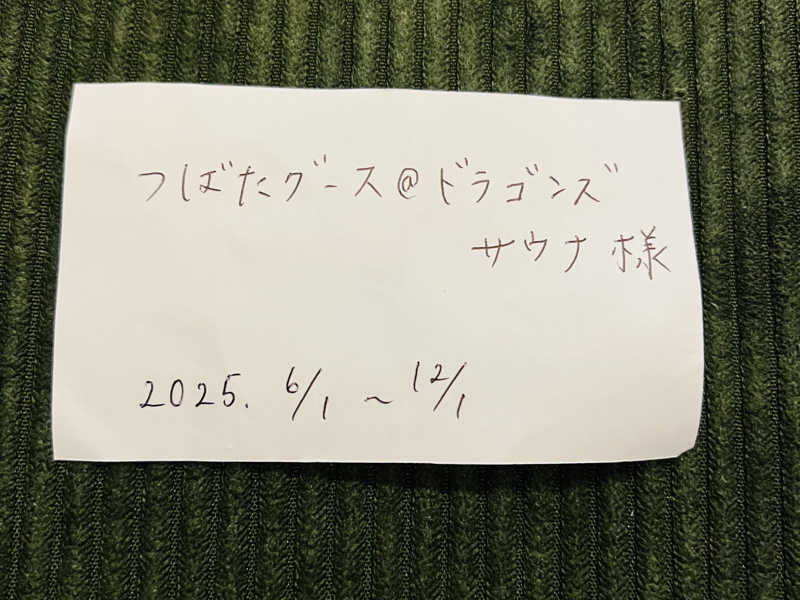 つばたグース@ドラゴンズ
サウナ様
2025. 6/1 ~ 12/1